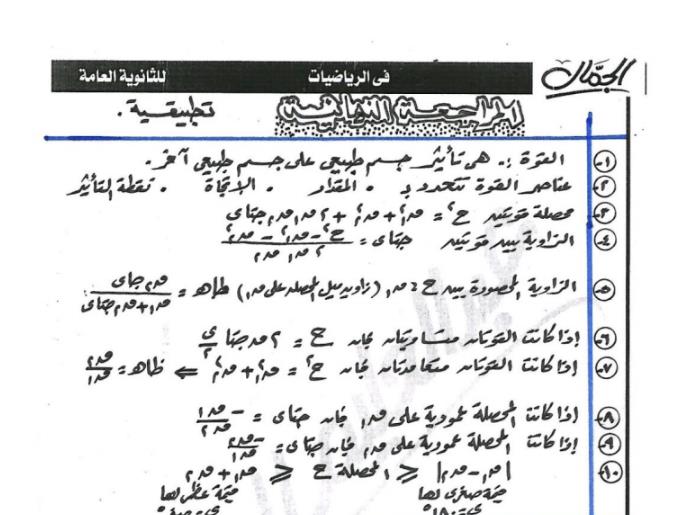 الجمال
فى الرياضيات
للثانوية العامة
المراجعة النهائية
تطبيقية .
١- القوة :. هى تأثير جسم طبيعى على جسم طبيعى آخر .
٢- عناصر القوة تتحدد بـ . المقدار . الاتجاه . نقطة التأثير
٣- محصلة قوتين ح² = ق₁² + ق₂² + ٢ ق₁ ق₂ جتا ى
٤- الزاوية بين قوتين جتا ى = (ح² - ق₁² - ق₂²) / (٢ ق₁ ق₂)
٥- الزاوية المحصورة بين ح ، ق₁ (زاوية ميل المحصلة على ق₁) ظا هـ = (ق₂ جا ى) / (ق₁ + ق₂ جتا ى)
٦- إذا كانت القوتان متساويتان فإن ح = ٢ ق جتا ى/٢
٧- إذا كانت القوتان متعامدتان فإن ح² = ق₁² + ق₂² ⇐ ظا هـ = ق₂/ق₁
٨- إذا كانت المحصلة عمودية على ق₁ فإن جتا ى = -ق₁/ق₂
٩- إذا كانت المحصلة عمودية على ق₂ فإن جتا ى = -ق₂/ق₁
١٠- |ق₁ - ق₂| ≥ المحصلة ح ≥ ق₁ + ق₂
قيمة صغرى لها
قيمة عظمى لها